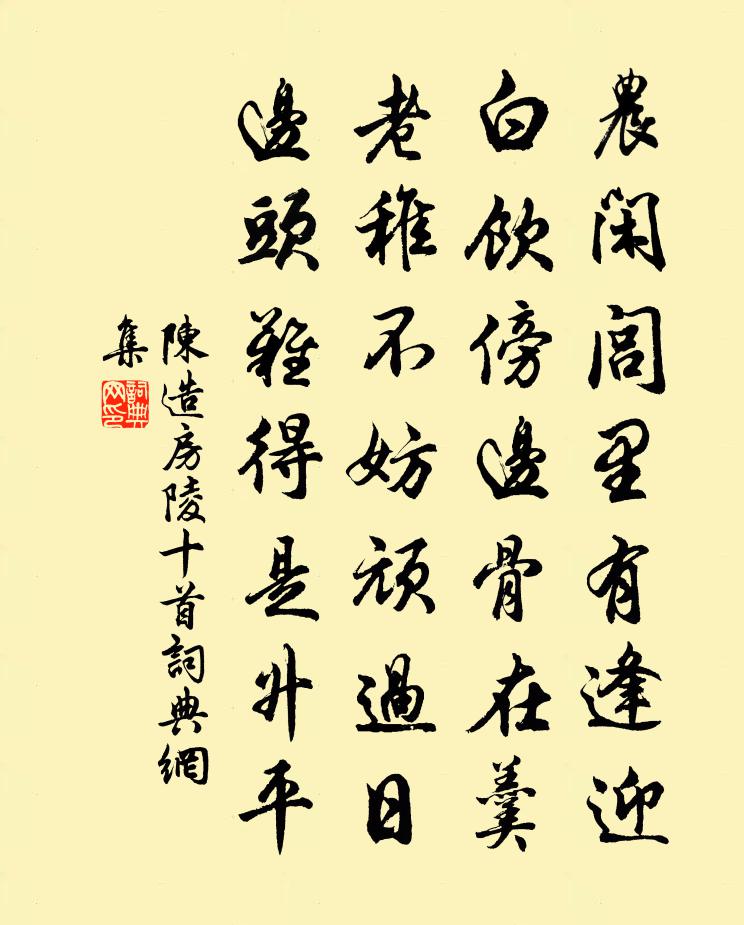 農閑閭里有逢迎
白飲傍邊骨在羹
老稚不妨頑過日
邊頭難得是升平
陳造房陵十首詞典網
集
詞典網印